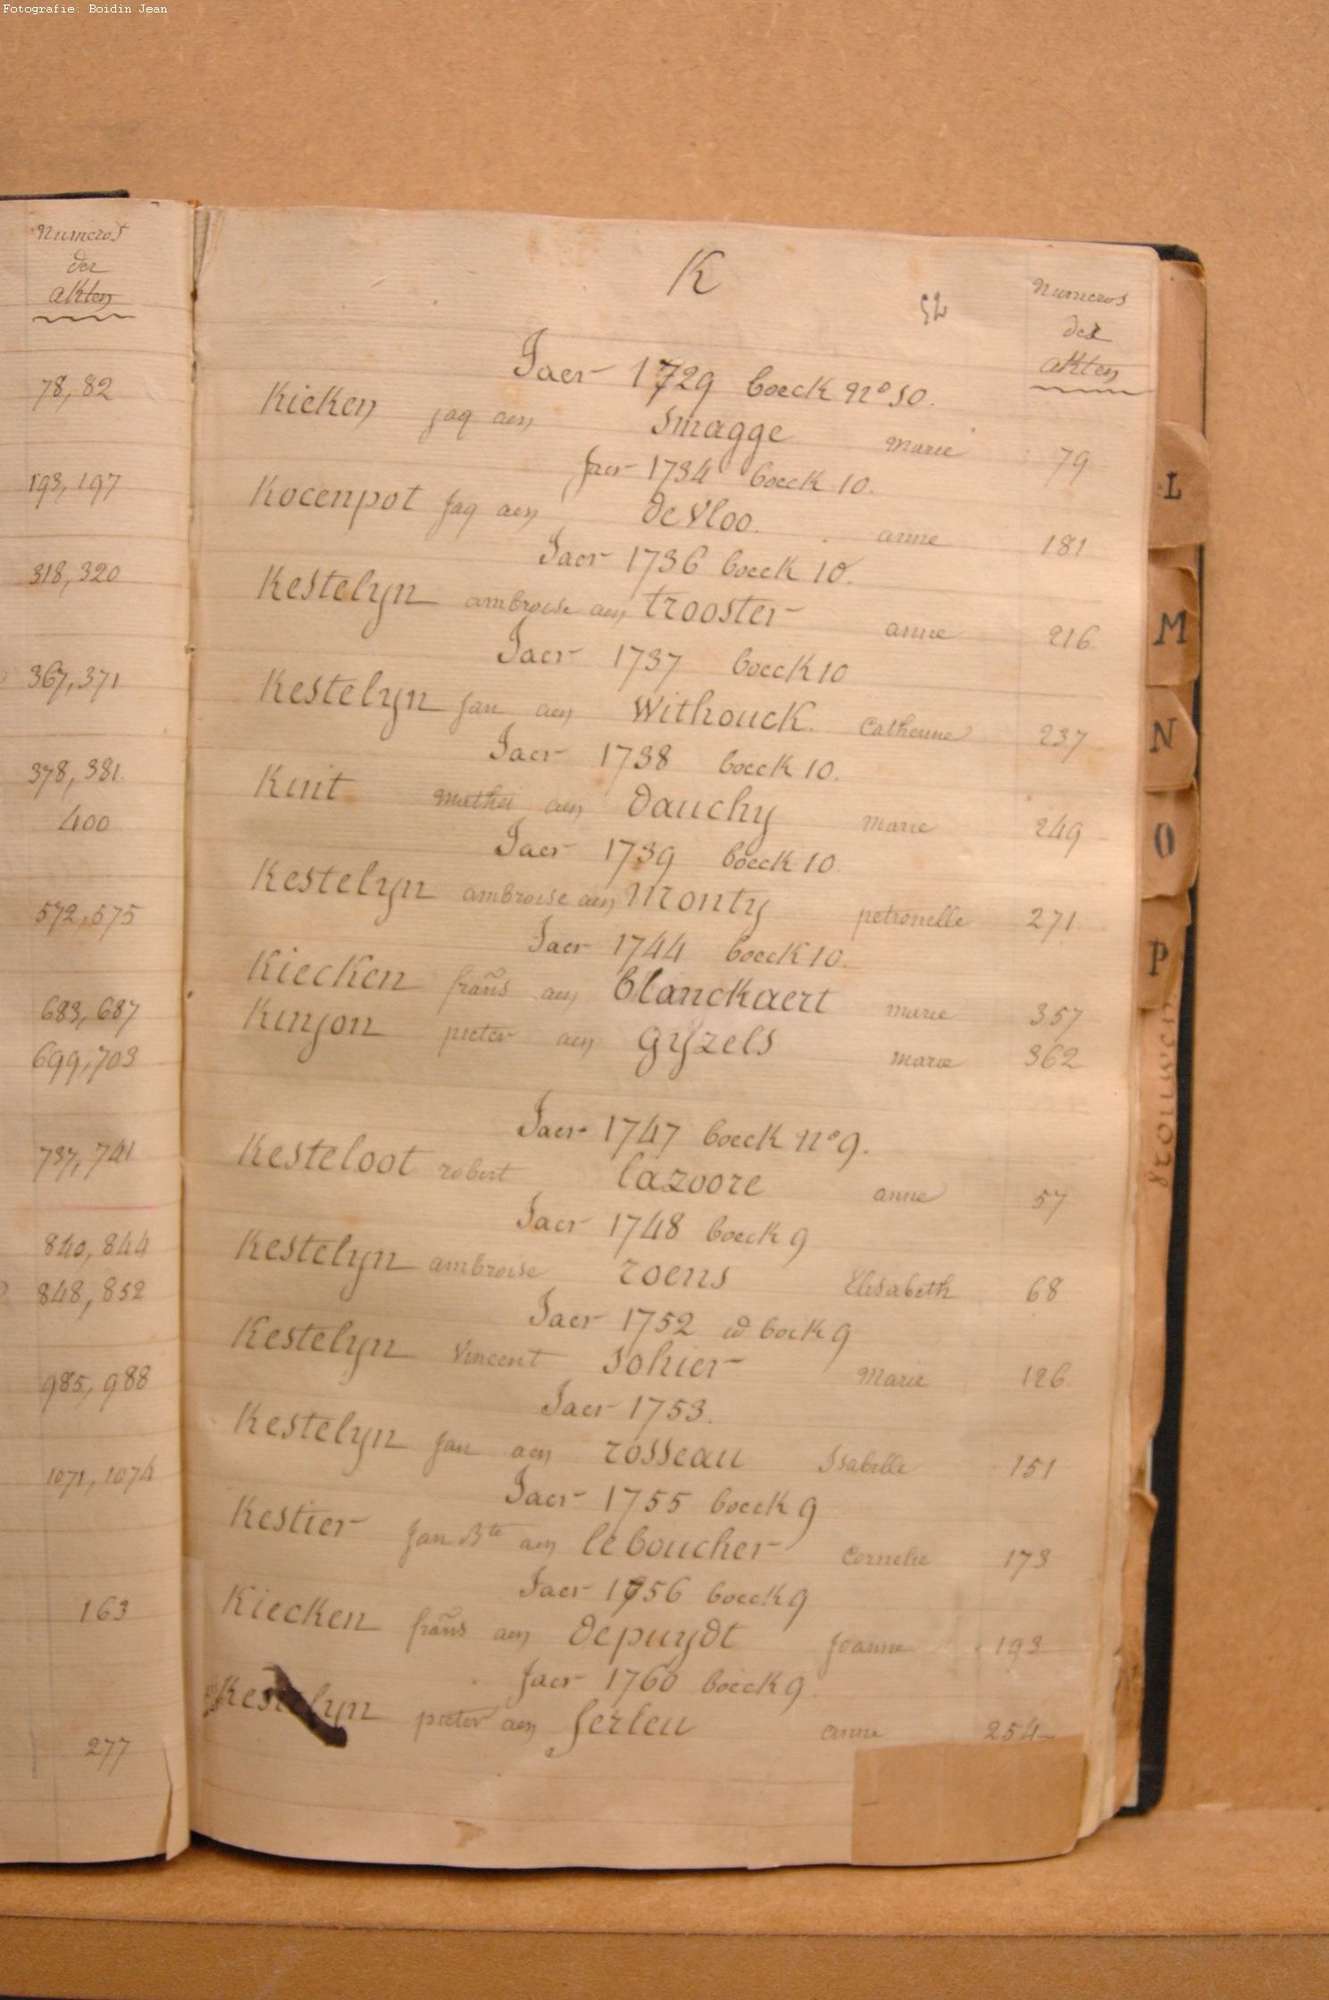 Fotografie: Boidin Jean
Numeros
der
akten
78, 82
193, 197
318, 320
367, 371
378, 381
400
572, 575
683, 687
699, 703
737, 741
840, 844
848, 852
985, 988
1071, 1074
163
277
K
52
Numeros
der
akten
Jaer 1729 boeck No 10.
Kieken jaq aen Smagge Marie 79
Jaer 1734 boeck 10.
Kocenpot Jaq aen de Vloo. anne 181
Jaer 1736 boeck 10.
Kestelyn ambroise aen trooster anne 216
Jaer 1737 boeck 10
Kestelyn Jan aen Withouck. Catherine 237
Jaer 1738 boeck 10.
Kint aen dauchy marie 249
Jaer 1739 boeck 10
Kestelyn ambroise aen Monty petronelle 271
Jaer 1744 boeck 10.
Kiecken frans aen blanckaert marie 357
Kinjon pieter aen gijzels marie 362
Jaer 1747 boeck No 9.
Kesteloot robert lazoore anne 57
Jaer 1748 boeck 9
Kestelyn ambroise roens Elisabeth 68
Jaer 1752 boek 9
Kestelyn Vincent Sohier Marie 126
Jaer 1753.
Kestelyn Jan aen rosseau Isabelle 151
Jaer 1755 boeck 9
Kestier Jan Bte aen leboucher Cornelie 173
Jaer 1756 boeck 9
Kiecken frans aen depuydt Joanne 193
Jaer 1760 boeck 9.
Kestelyn pieter aen ferleu anne 254
L
M
N
O
P
Vrouwen